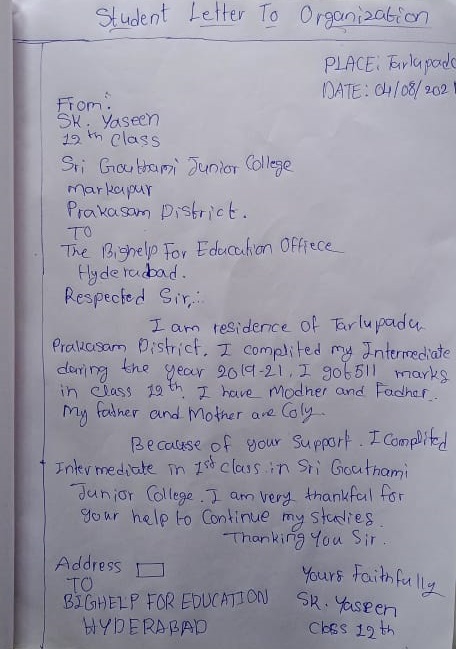 Student Letter To Organization
PLACE: Tarlupado
DATE: 04/08/2021
From:
SK. Yaseen
12th Class
Sri Gouthami Junior College
markapur
Prakasam District.
TO
The Bighelp For Education Offiece
Hyderabad.
Respected Sir,:
I am residence of Tarlupadu
Prakasam District. I complited my Intermediate
daring the year 2019-21. I got 511 marks
in class 12th. I have Modher and Fadher.
My father and Mother are Coly.
Because of your Support. I Complited
Intermediate in 1st class in Sri Gouthami
Junior College. I am very thankful for
your help to Continue my studies.
Thanking You Sir.
Address
Yours Faithfully
TO
BIGHELP FOR EDUCATION
SK. Yaseen
HYDERABAD
Class 12th